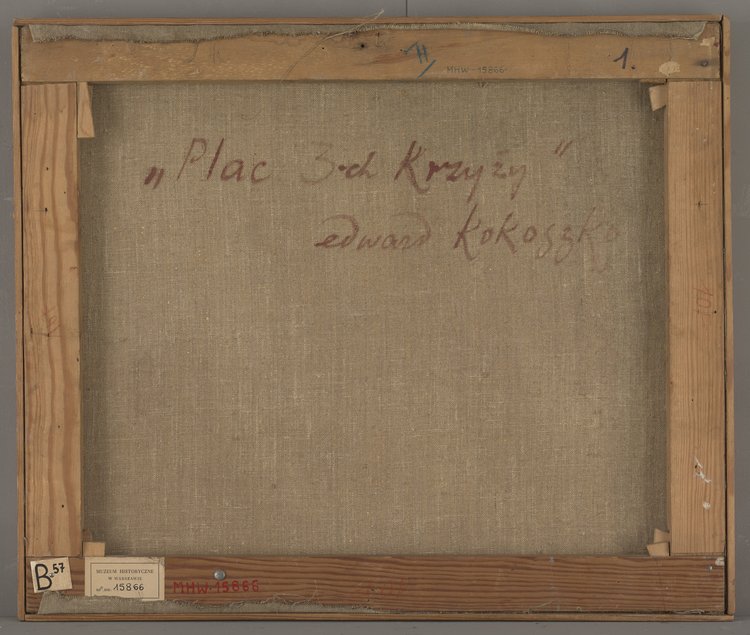 II
MHW 15866
1.
„Plac 3-ch Krzyży”
edward Kokoszko
B-57
MUZEUM HISTORYCZNE
W WARSZAWIE
15866
MHW.15866